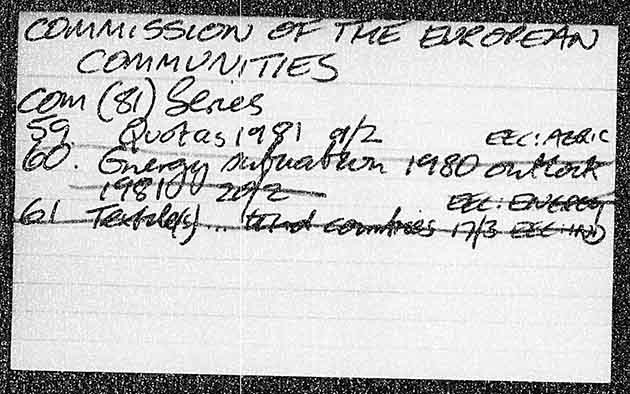 COMMISSION OF THE EUROPEAN
COMMUNITIES
COM (81) Series
59. Quotas 1981 9/2 EEC: AGRIC
60. Energy situation 1980 outlook
1981 20/2 EEC: ENERGY
61 Textile(s) .. third countries 17/3 EEC: IND